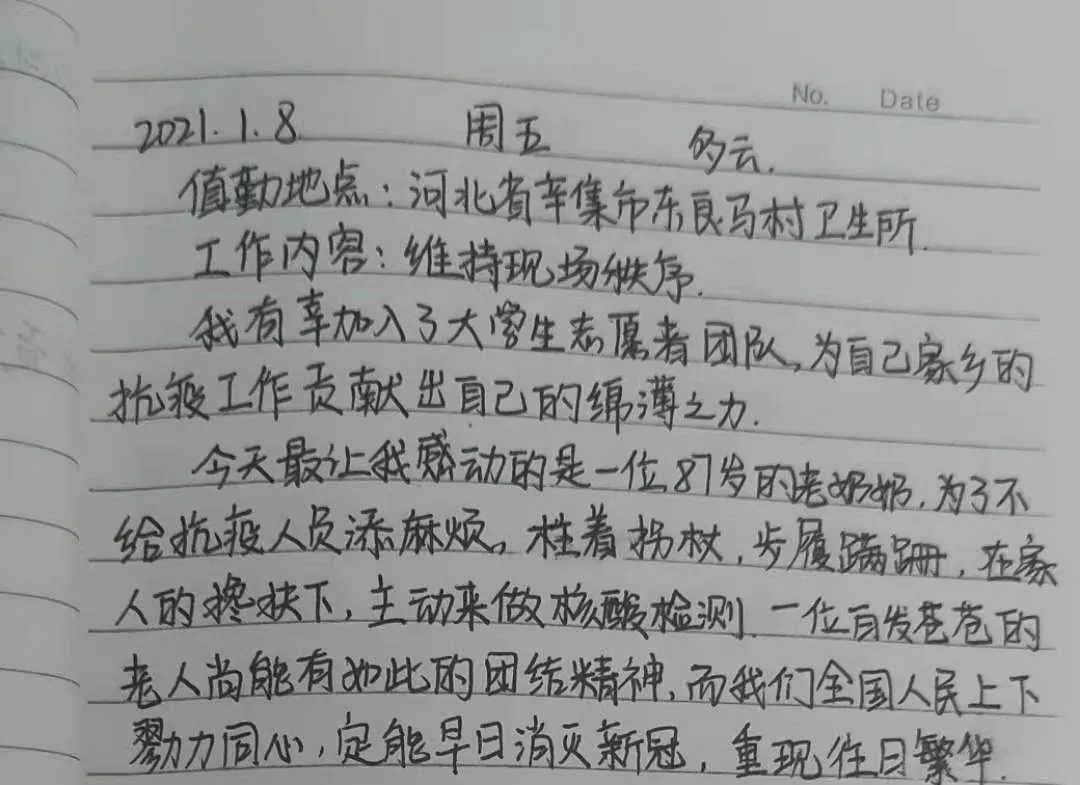 No. Date
2021.1.8. 周五 多云.
值勤地点：河北省辛集市东良马村卫生所.
工作内容：维持现场秩序.
我有幸加入了大学生志愿者团队，为自己家乡的
抗疫工作贡献出自己的绵薄之力.
今天最让我感动的是一位87岁的老奶奶，为了不
给抗疫人员添麻烦，柱着拐杖，步履蹒跚，在家
人的搀扶下，主动来做核酸检测.一位白发苍苍的
老人尚能有如此的团结精神，而我们全国人民上下
勠力同心，定能早日消灭新冠，重现往日繁华.